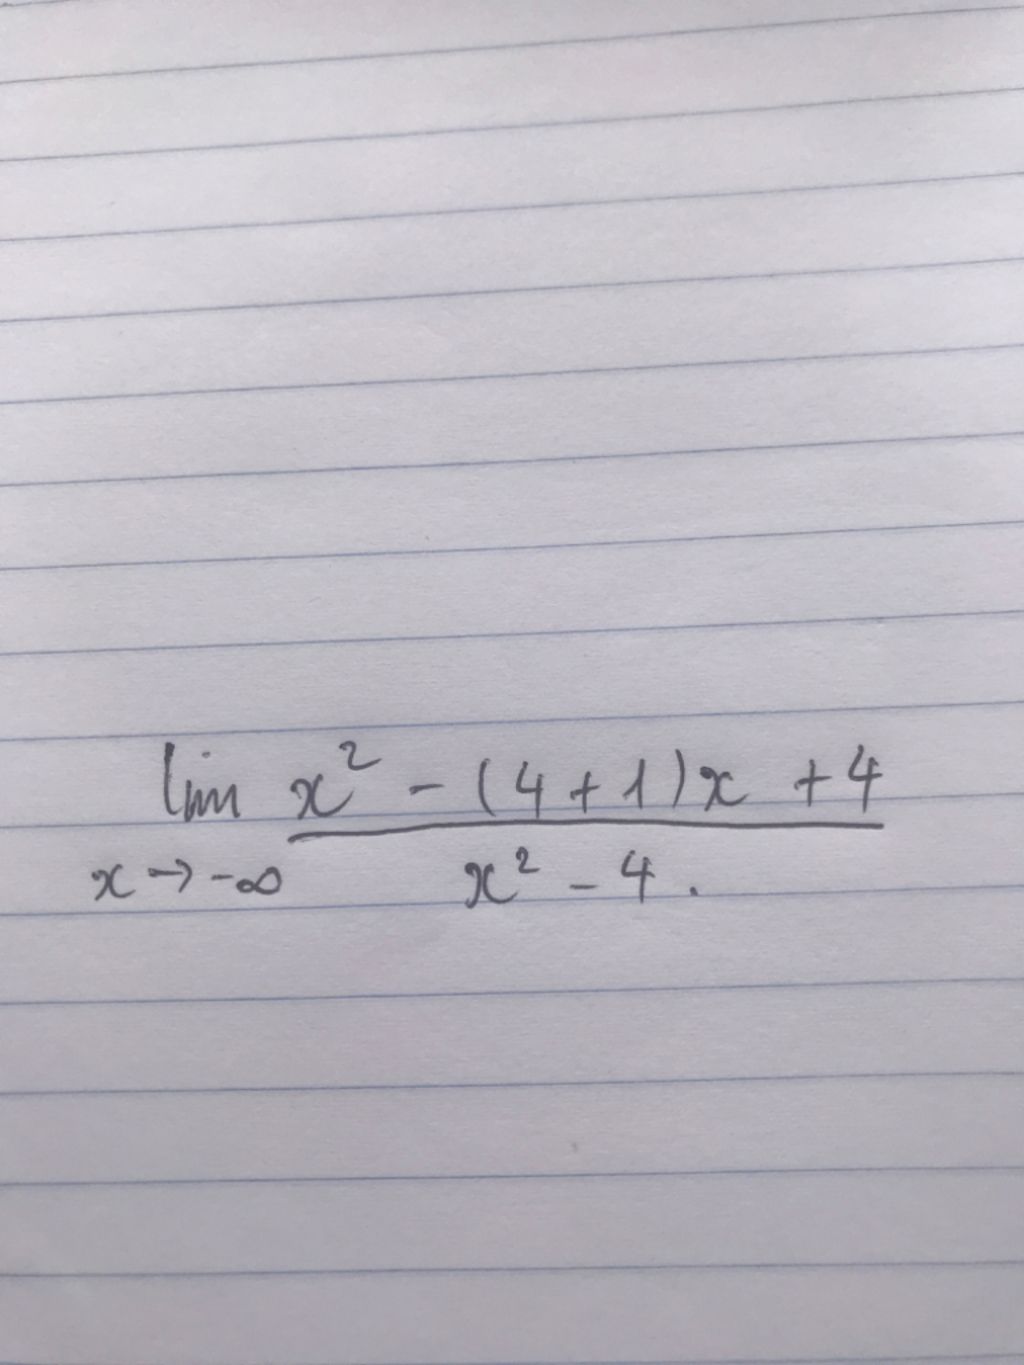 lim x² - (4+1)x +4
x→-∞ x² - 4.